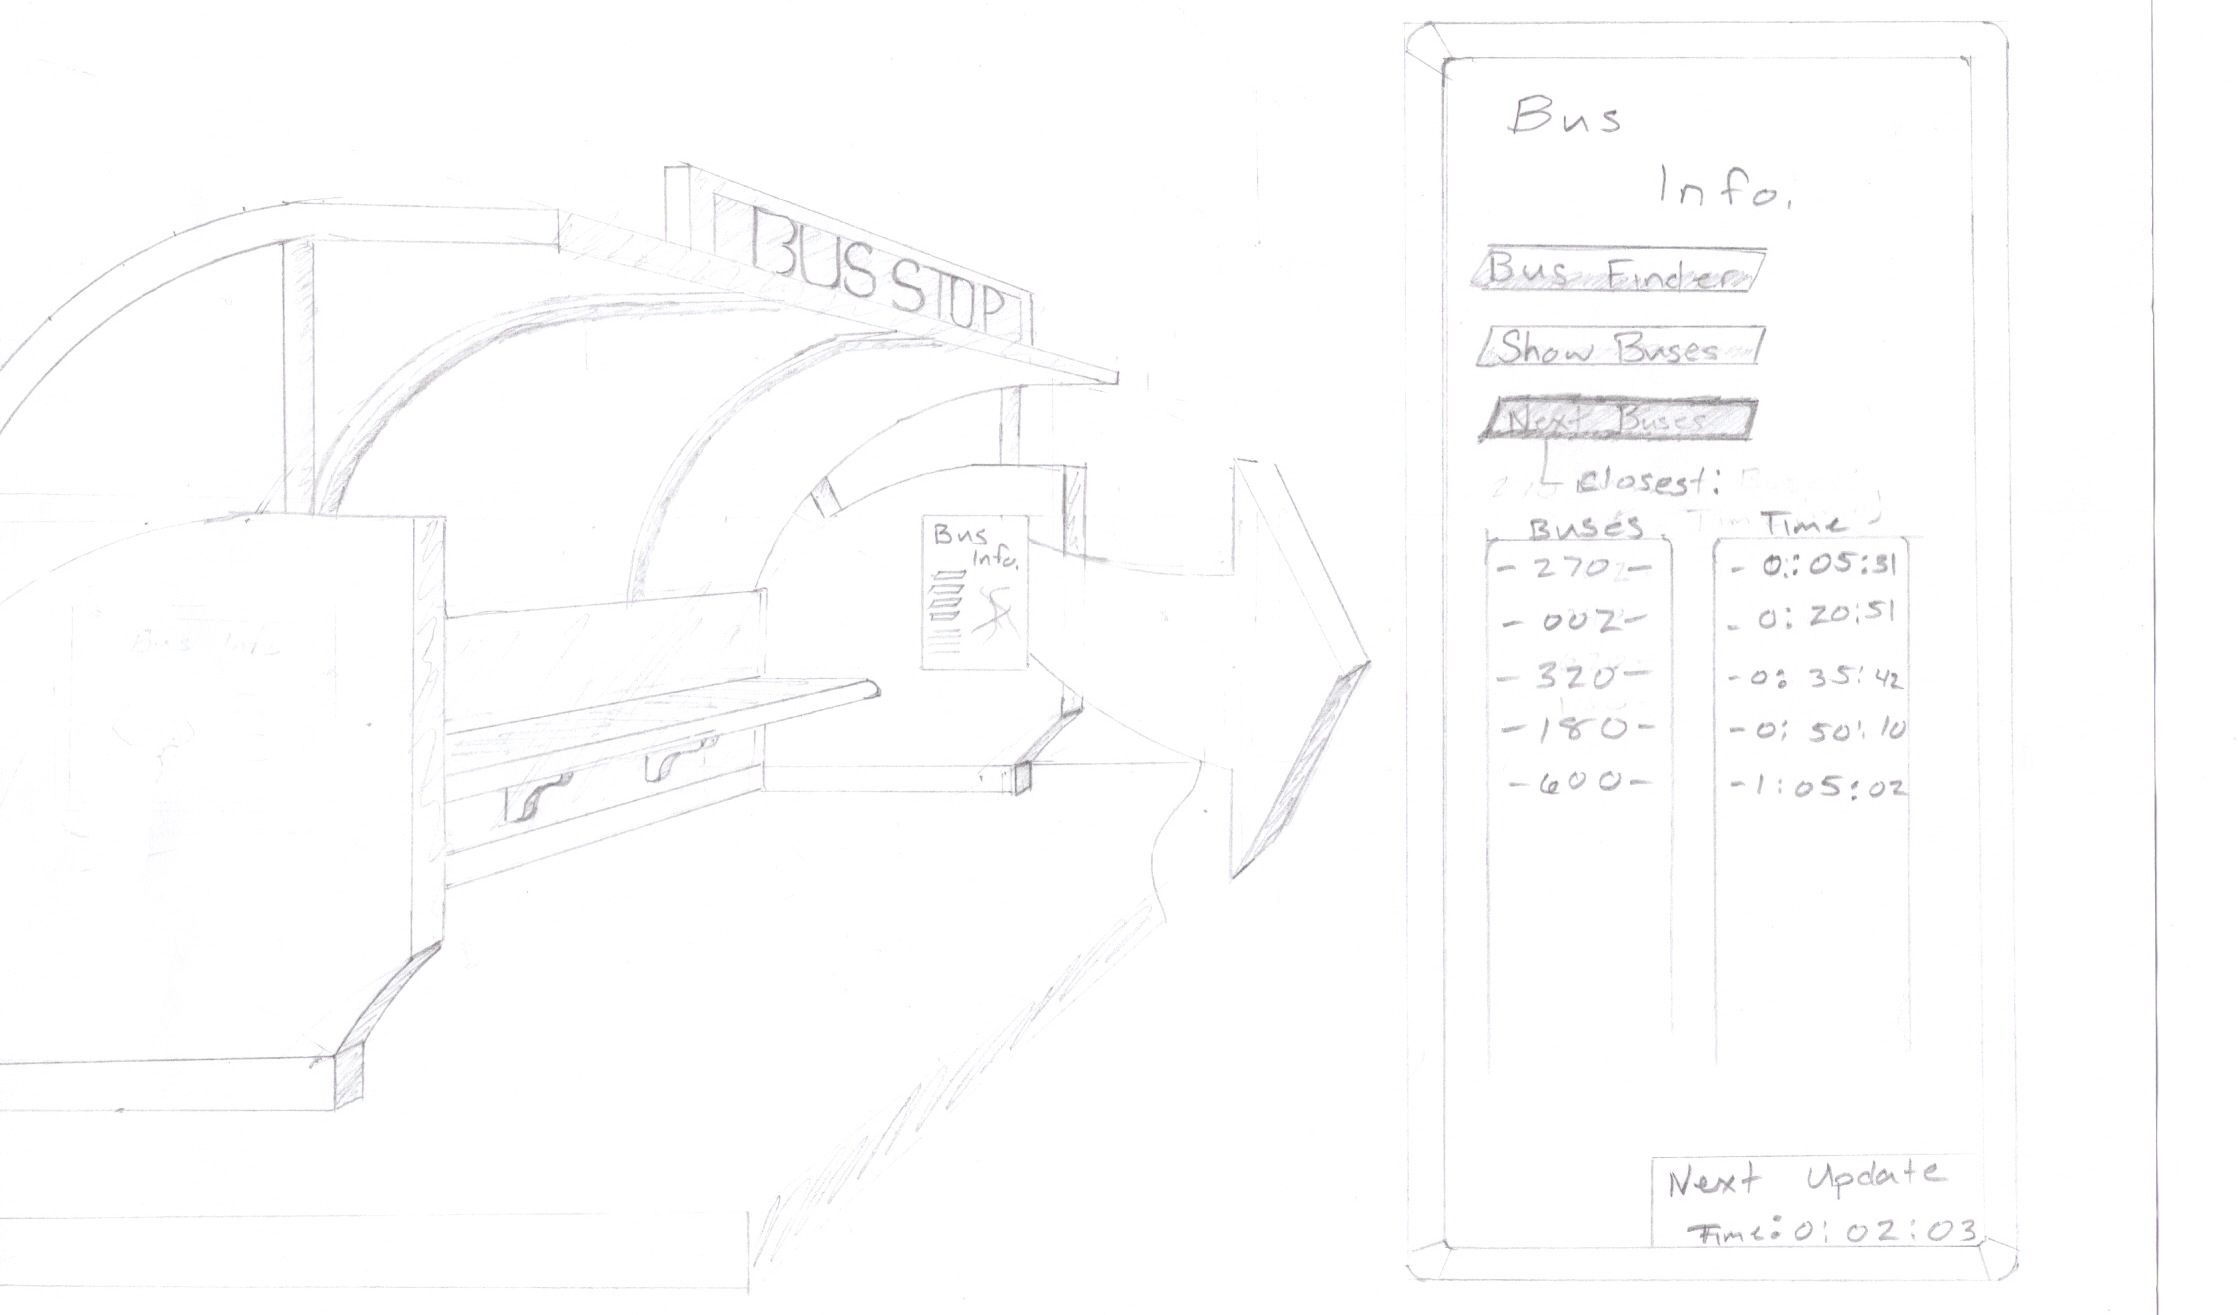 BUS STOP
Bus
Info.
Bus Info
Bus
Info.
Bus Finder
Show Buses
Next Buses
Closest:
Buses Time
- 270 - - 0:05:31
- 002 - - 0:20:51
- 320 - - 0:35:42
- 180 - - 0:50:10
- 600 - - 1:05:02
Next Update
Time: 0:02:03